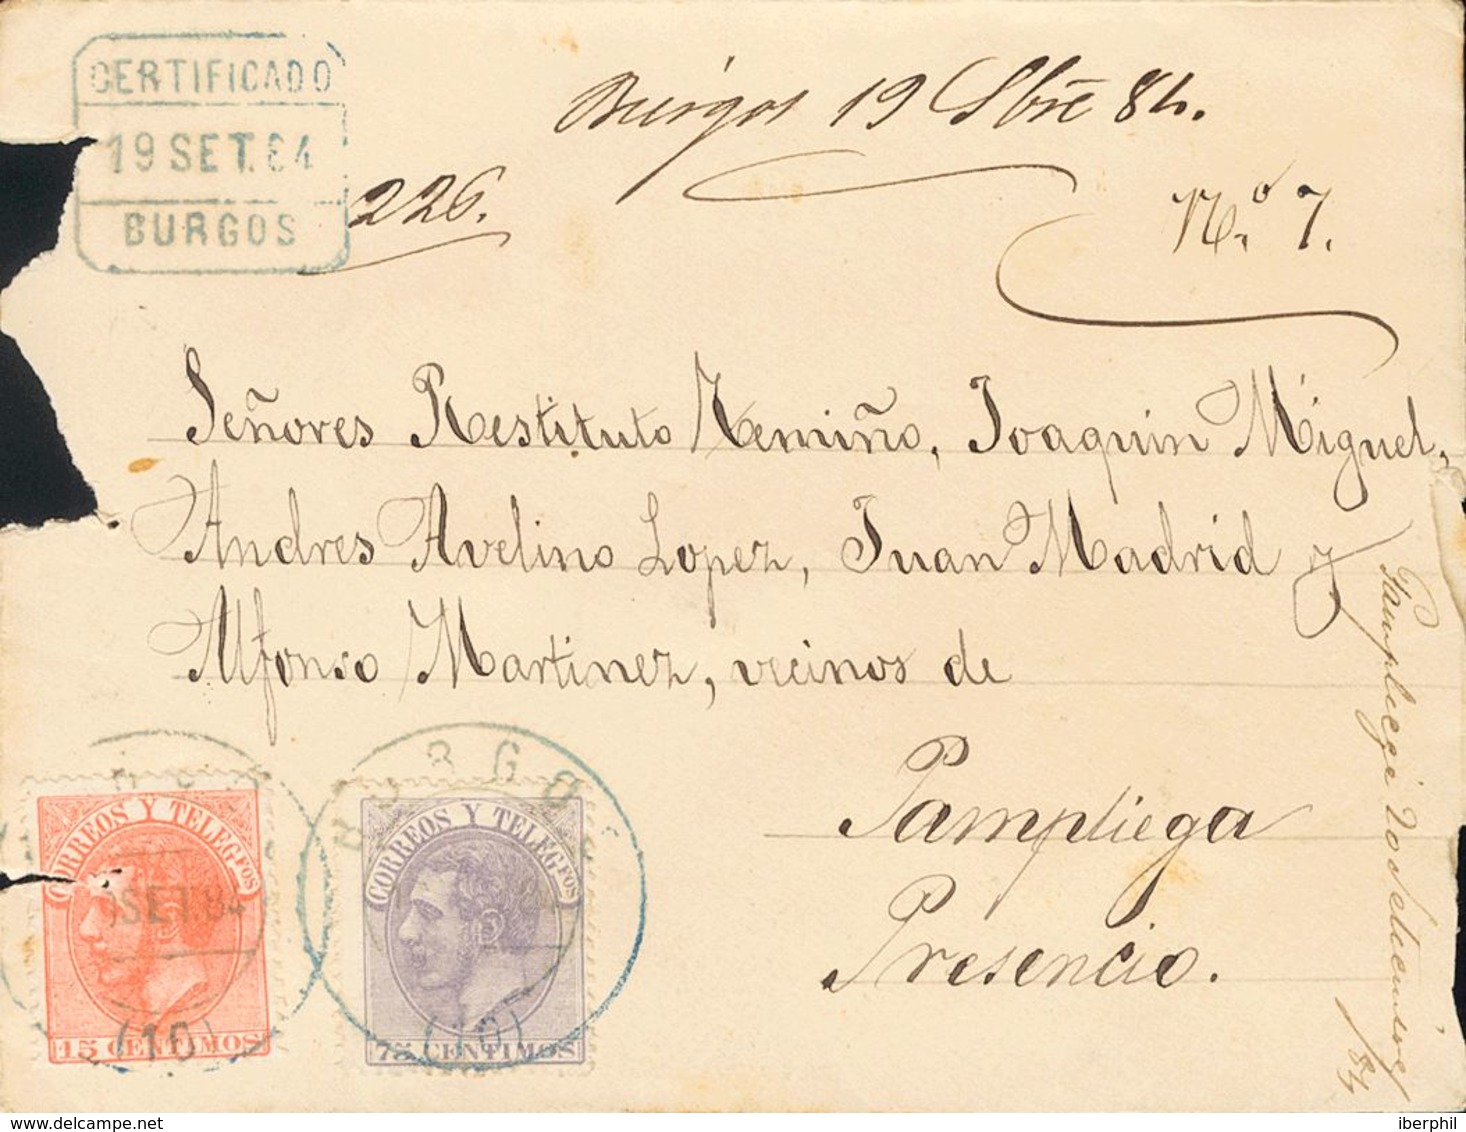 CERTIFICADO
19 SET. 84
BURGOS
Burgos 19 Sbre 84.
226.
N.º 7.
Señores Restituto Temiño, Joaquin Miguel,
Andres Avelino Lopez, Juan Madrid y
Alfonso Martinez, vecinos de
Pampliega
Presencio.
Pampliega 20 Setiembre 84
CORREOS Y TELEGFOS
SET. 84
(10)
15 CENTIMOS
BURGOS
CORREOS Y TELEGFOS
(10)
75 CENTIMOS
iberphil